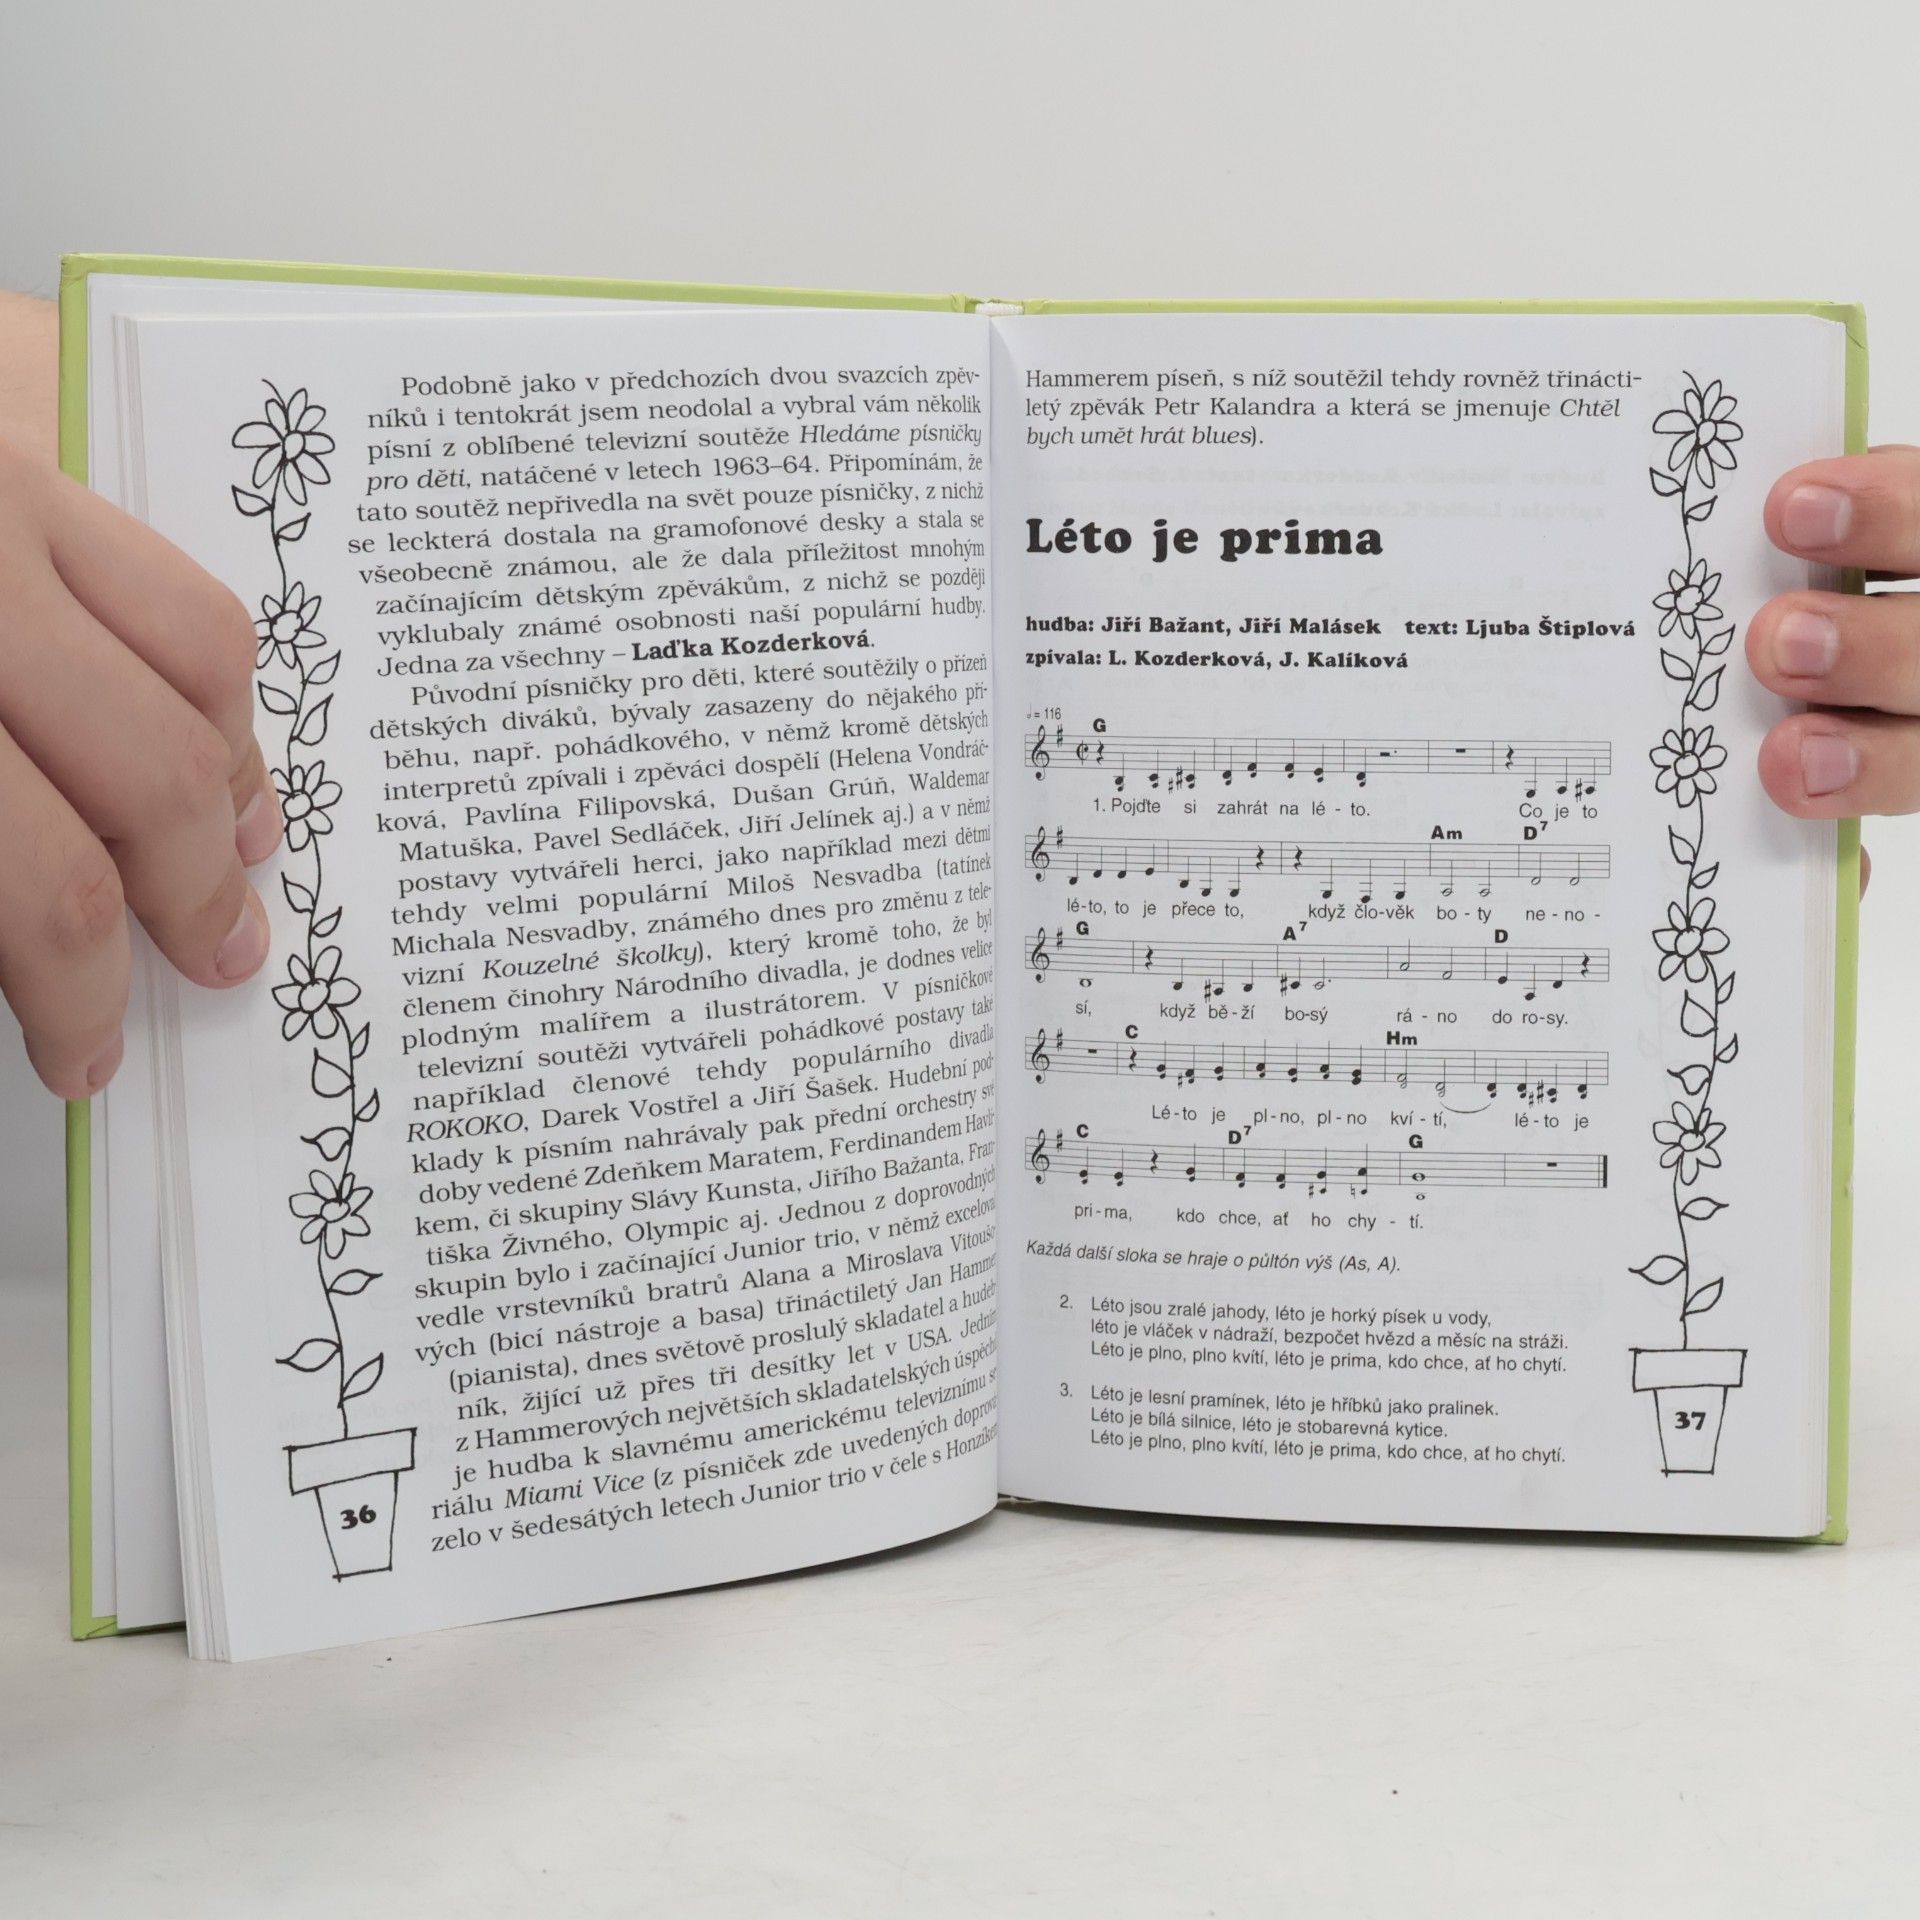 Podobně jako v předchozích dvou svazcích zpěv-
níků i tentokrát jsem neodolal a vybral vám několik
písní z oblíbené televizní soutěže Hledáme písničky
pro děti, natáčené v letech 1963–64. Připomínám, že
tato soutěž nepřivedla na svět pouze písničky, z nichž
se leckterá dostala na gramofonové desky a stala se
všeobecně známou, ale že dala příležitost mnohým
začínajícím dětským zpěvákům, z nichž se později
vyklubaly známé osobnosti naší populární hudby.
Jedna za všechny – Laďka Kozderková.
Původní písničky pro děti, které soutěžily o přízeň
dětských diváků, bývaly zasazeny do nějakého pří-
běhu, např. pohádkového, v němž kromě dětských
interpretů zpívali i zpěváci dospělí (Helena Vondráč-
ková, Pavlína Filipovská, Dušan Grúň, Waldemar
Matuška, Pavel Sedláček, Jiří Jelínek aj.) a v němž
postavy vytvářeli herci, jako například mezi dětmi
tehdy velmi populární Miloš Nesvadba (tatínek
Michala Nesvadby, známého dnes pro změnu z tele-
vizní Kouzelné školky), který kromě toho, že byl
členem činohry Národního divadla, je dodnes velice
plodným malířem a ilustrátorem. V písničkové
televizní soutěži vytvářeli pohádkové postavy také
například členové tehdy populárního divadla
ROKOKO, Darek Vostřel a Jiří Šašek. Hudební pod-
klady k písním nahrávaly pak přední orchestry své
doby vedené Zdeňkem Maratem, Ferdinandem Havlí-
kem, či skupiny Slávy Kunsta, Jiřího Bažanta, Fran-
tiška Živného, Olympic aj. Jednou z doprovodných
skupin bylo i začínající Junior trio, v němž exceloval
vedle vrstevníků bratrů Alana a Miroslava Vitoušo-
vých (bicí nástroje a basa) třináctiletý Jan Hammer
(pianista), dnes světově proslulý skladatel a hudeb-
ník, žijící už přes tři desítky let v USA. Jedním
z Hammerových největších skladatelských úspěchů
je hudba k slavnému americkému televiznímu se-
riálu Miami Vice (z písniček zde uvedených doprová-
zelo v šedesátých letech Junior trio v čele s Honzíkem
36
Hammerem píseň, s níž soutěžil tehdy rovněž třinácti-
letý zpěvák Petr Kalandra a která se jmenuje Chtěl
bych umět hrát blues).
Léto je prima
hudba: Jiří Bažant, Jiří Malásek text: Ljuba Štiplová
zpívala: L. Kozderková, J. Kalíková
♩= 116
G
1. Pojďte si zahrát na lé - to. Co je to
Am D7
lé-to, to je přece to, když člo-věk bo - ty ne - no -
G A7 D
sí, když bě - ží bo-sý rá - no do ro-sy.
C Hm
Lé - to je pl - no, pl - no kví - tí, lé - to je
C D7 G
pri - ma, kdo chce, ať ho chy - tí.
Každá další sloka se hraje o půltón výš (As, A).
2. Léto jsou zralé jahody, léto je horký písek u vody,
léto je vláček v nádraží, bezpočet hvězd a měsíc na stráži.
Léto je plno, plno kvítí, léto je prima, kdo chce, ať ho chytí.
3. Léto je lesní pramínek, léto je hříbků jako pralinek.
Léto je bílá silnice, léto je stobarevná kytice.
Léto je plno, plno kvítí, léto je prima, kdo chce, ať ho chytí.
37